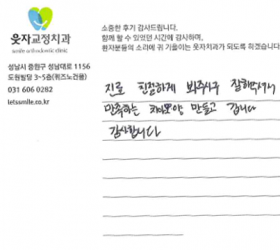 웃자교정치과
smile orthodontic clinic
성남시 중원구 성남대로 1156
도원빌딩 3~5층(퀴즈노건물)
031 606 0282
letssmile.co.kr
소중한 후기 감사드립니다.
함께 할 수 있었던 시간에 감사하며,
환자분들의 소리에 귀 기울이는 웃자치과가 되도록 하겠습니다
진료 친절하게 봐주시구 잘해주셔서
만족하는 치아모양 만들고 갑니다
감사합니다